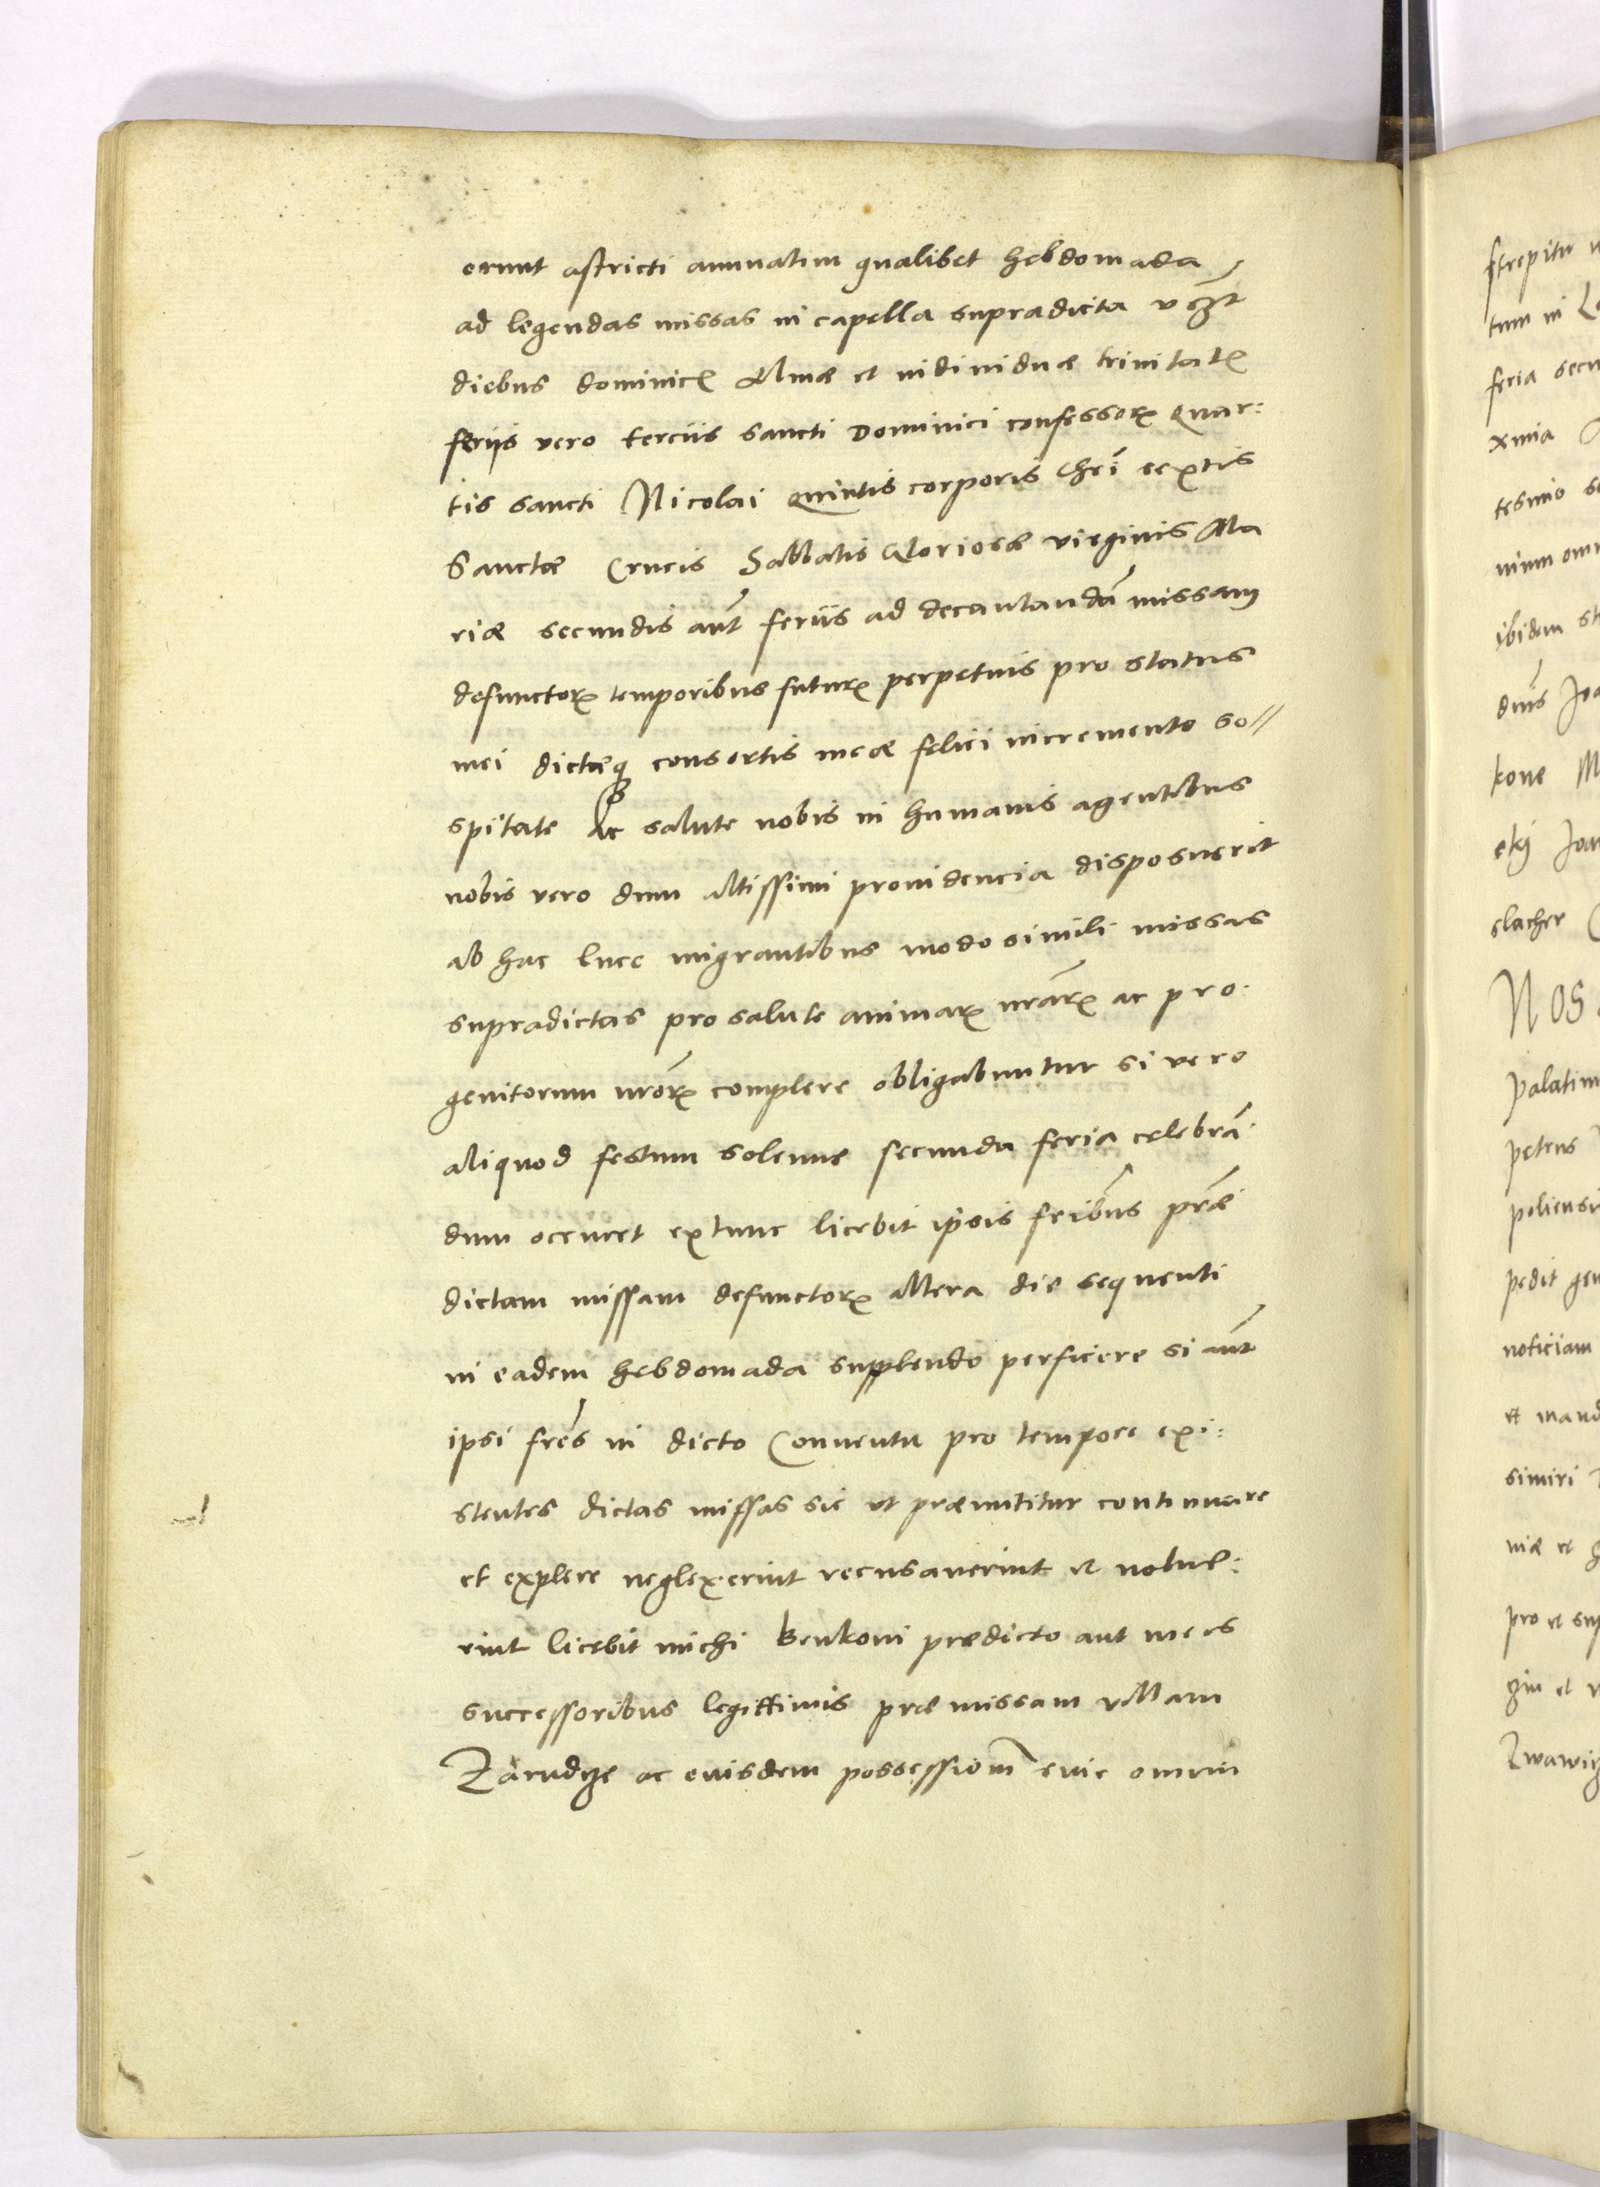 erunt astricti annuatim qualibet hebdomada
ad legendas missas in capella supradicta vczt
diebus dominicꝭ Almæ et individuæ trinitatꝭ
feriis vero terciis sancti Dominici confessorꝭ Quar:
tis sancti Nicolai Quintis corporis Chri sextis
Sanctæ Crucis Sabbatis Gloriosæ virginis Ma
riæ secundis aūt feriis ad decantandā missam
defunctorꝝ temporibus futurꝭ perpetuis pro status
mei dictæq consortis meæ felici incremento so//
spitate Ac salute nobis in humanis agentibus
nobis vero dum altissimi providencia disposuerit
ab hac luce migrantibus modo simili missas
supradictas pro salute animarꝝ nrārꝝ ac pro.
genitorum nrōrꝝ complere obligabuntur si vero
aliquod festum solenne secunda feria celebrā.
dum occuret extunc licebit ipsis fribus præ
dictam missam defunctorꝝ altera die sequenti
in eadem hebdomada supplendo perficere si aūt
ipsi fres in dicto Conventu pro tempore exi:
stentes dictas missas sic ut præmittitur continuare
et explere neglexerint recusaverint et nolue:
rint licebit michi Benkoni prædicto aut meis
successoribus legittimis præmissam villam
Zarudze ac eiusdem possessionē cuic omnin
strepitu
feria secu
xmia
tesimo
ibidem
kone
slacher
Nos
palatim
petens
poliensi
pedit gen
noticiam
et mand
simiri
niæ et
pro et sup